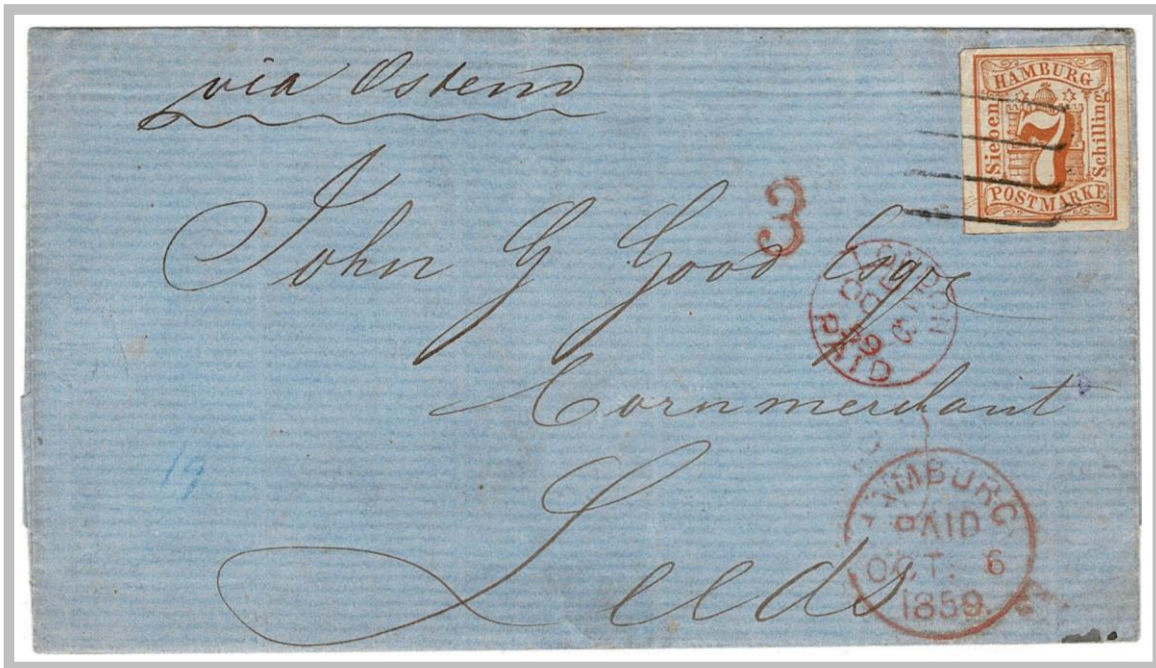 via Ostend
HAMBURG
Sieben
7
Schilling
POSTMARKE
3
John G Good Esqre
LONDON
OC
59
PAID
Corn merchant
19
HAMBURG
PAID
OCT. 6
1859.
Leeds